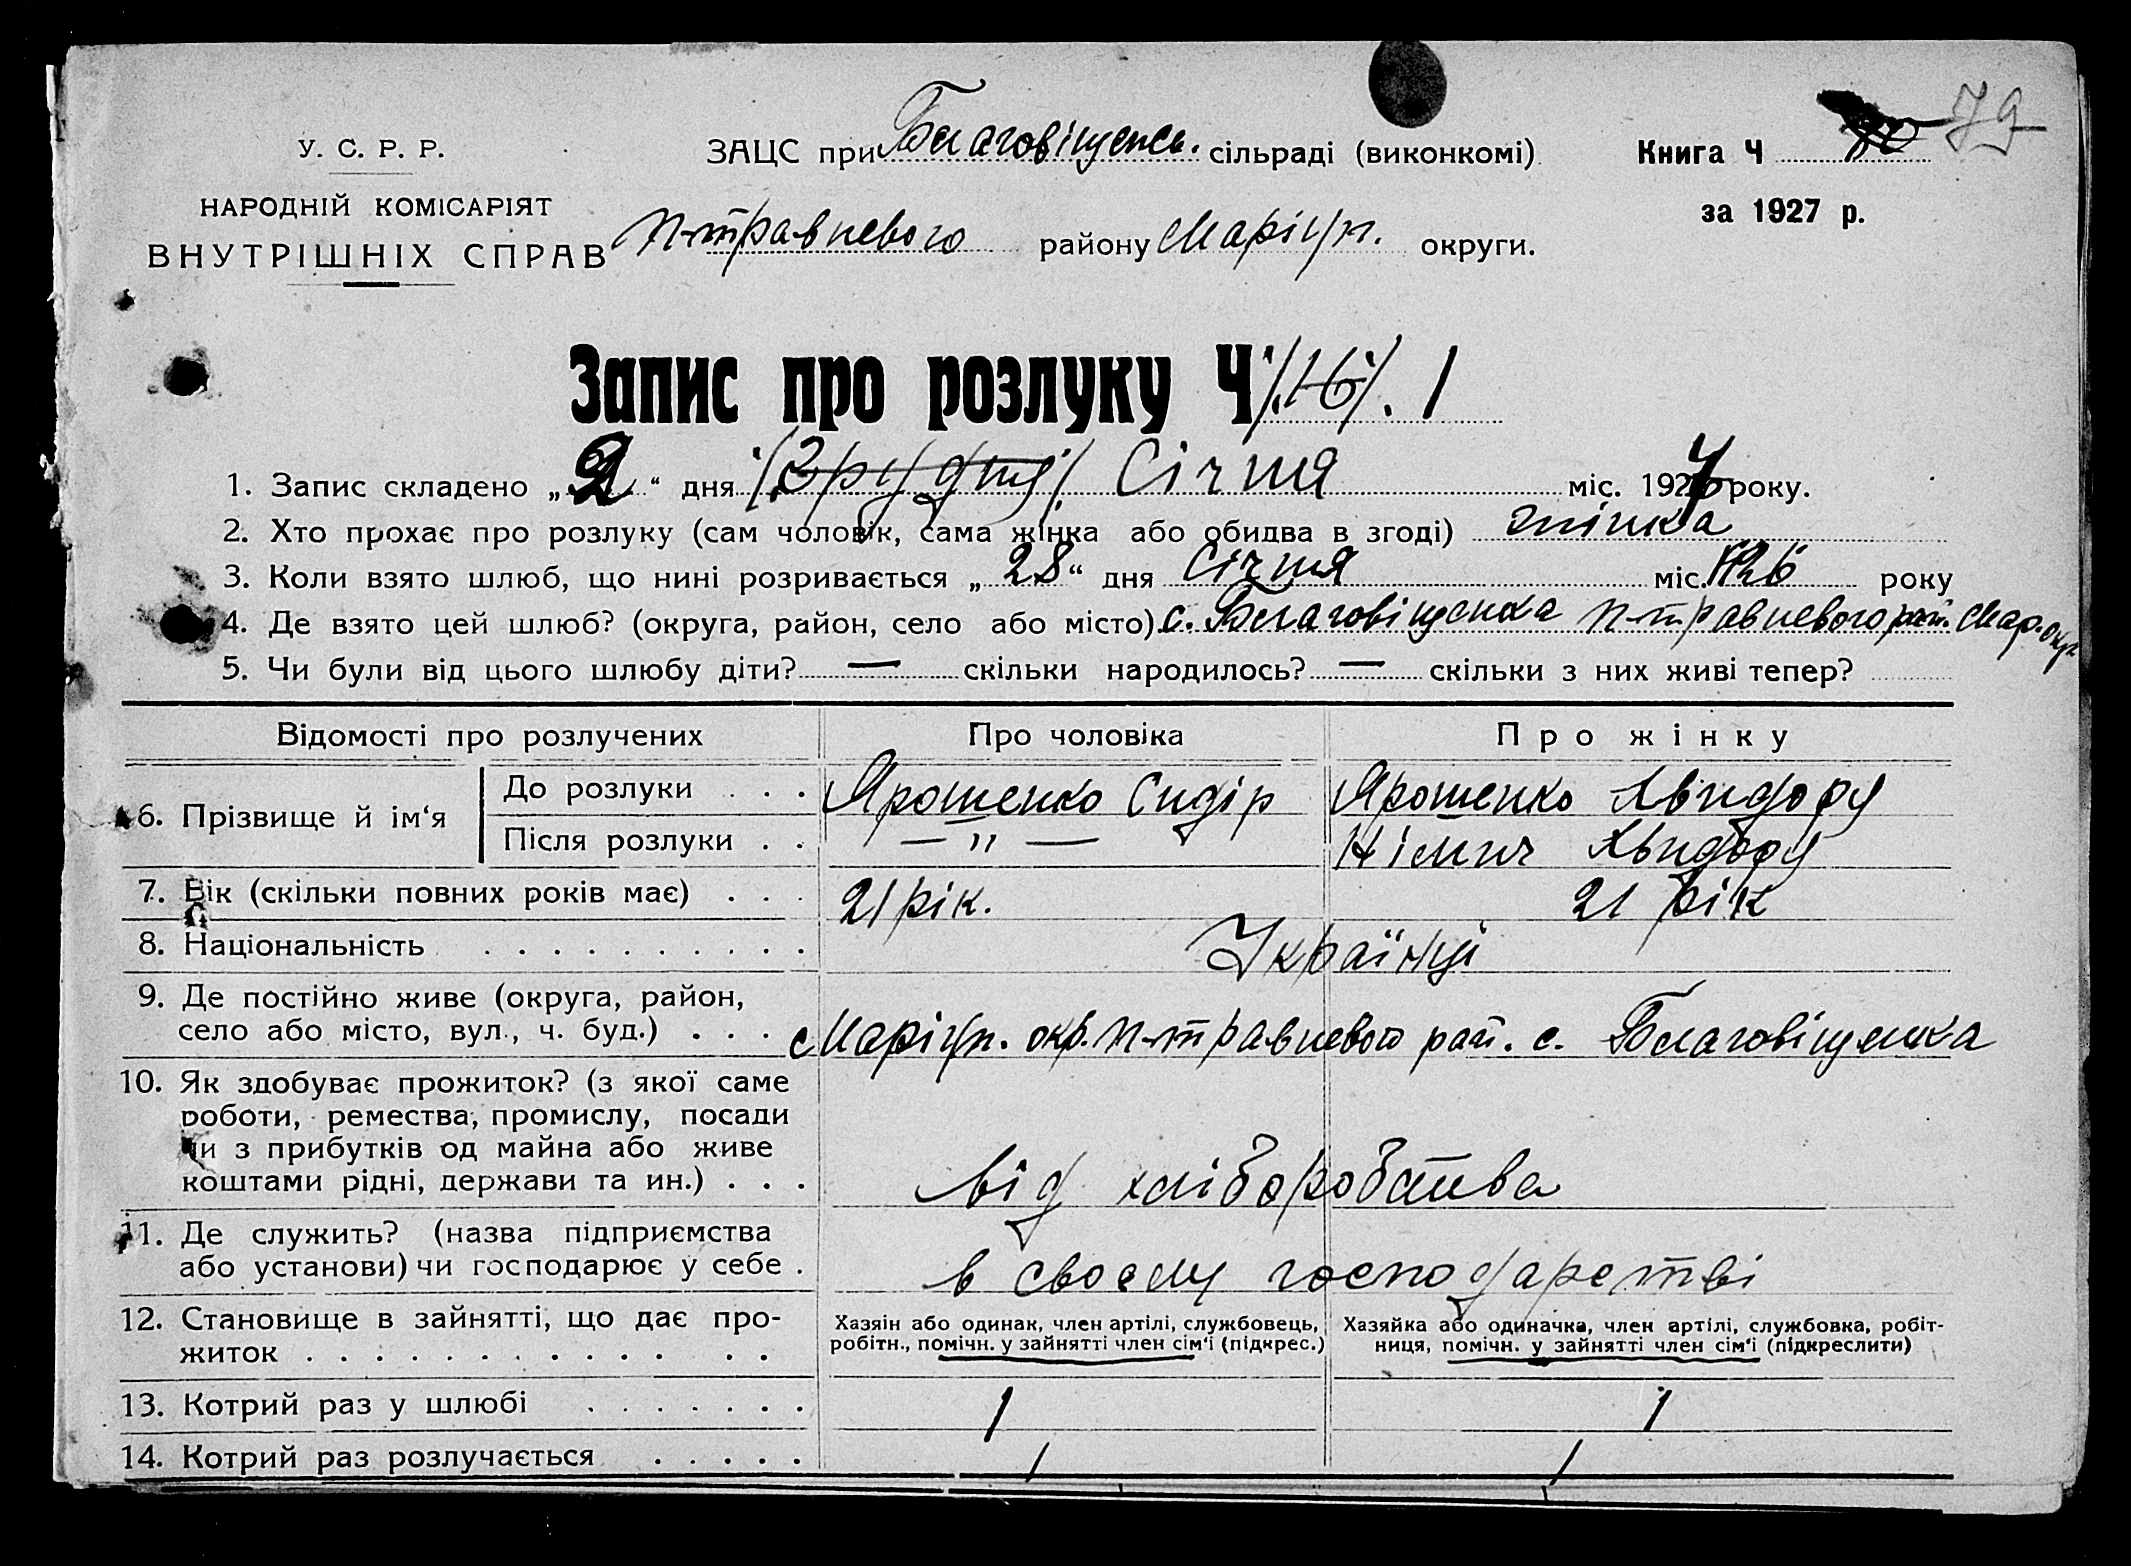 У. С. Р. Р.
НАРОДНІЙ КОМІСАРІЯТ
ВНУТРІШНІХ СПРАВ
ЗАЦС при Благовіщенсь. сільраді (виконкомі)
П-травневого району Маріуп. округи.
Книга Ч 79
за 1927 р.
Запис про розлуку Ч. /16/. 1
1. Запис складено „2“ дня Січня міс. 1927 року.
2. Хто прохає про розлуку (сам чоловік, сама жінка або обидва в згоді) жінка
3. Коли взято шлюб, що нині розривається „28“ дня Січня міс. 1926 року
4. Де взято цей шлюб? (округа, район, село або місто) с. Благовіщенка П-травневого рай. Мар. окр
5. Чи були від цього шлюбу діти? — скільки народилось? — скільки з них живі тепер?
Відомості про розлучених Про чоловіка Про жінку
6. Прізвище й ім‘я До розлуки . . . Ярошенко Сидір Ярошенко Явидору
Після розлуки . . — „ — Німич Явидору
7. Вік (скільки повних років має) . . . 21 рік. 21 рік
8. Національність . . . . . . . . . . Українці
9. Де постійно живе (округа, район,
село або місто, вул., ч. буд.) . . . Маріуп. окр. П-травневого рай. с. Благовіщенка
10. Як здобуває прожиток? (з якої саме
роботи, ремества, промислу, посади
чи з прибутків од майна або живе
коштами рідні, держави та ин.) . . . від хліборобства
11. Де служить? (назва підприємства
або установи) чи господарює у себе . в своєму господарстві
12. Становище в зайнятті, що дає про-
житок . . . . . . . . . . . . .
Хазяїн або одинак, член артілі, службовець,
робітн., помічн. у зайнятті член сім‘ї (підкрес.)
Хазяйка або одиначка, член артілі, службовка, робіт-
ниця, помічн. у зайнятті член сім‘ї (підкреслити)
13. Котрий раз у шлюбі . . . . . . . 1 1
14. Котрий раз розлучається . . . . . 1 1